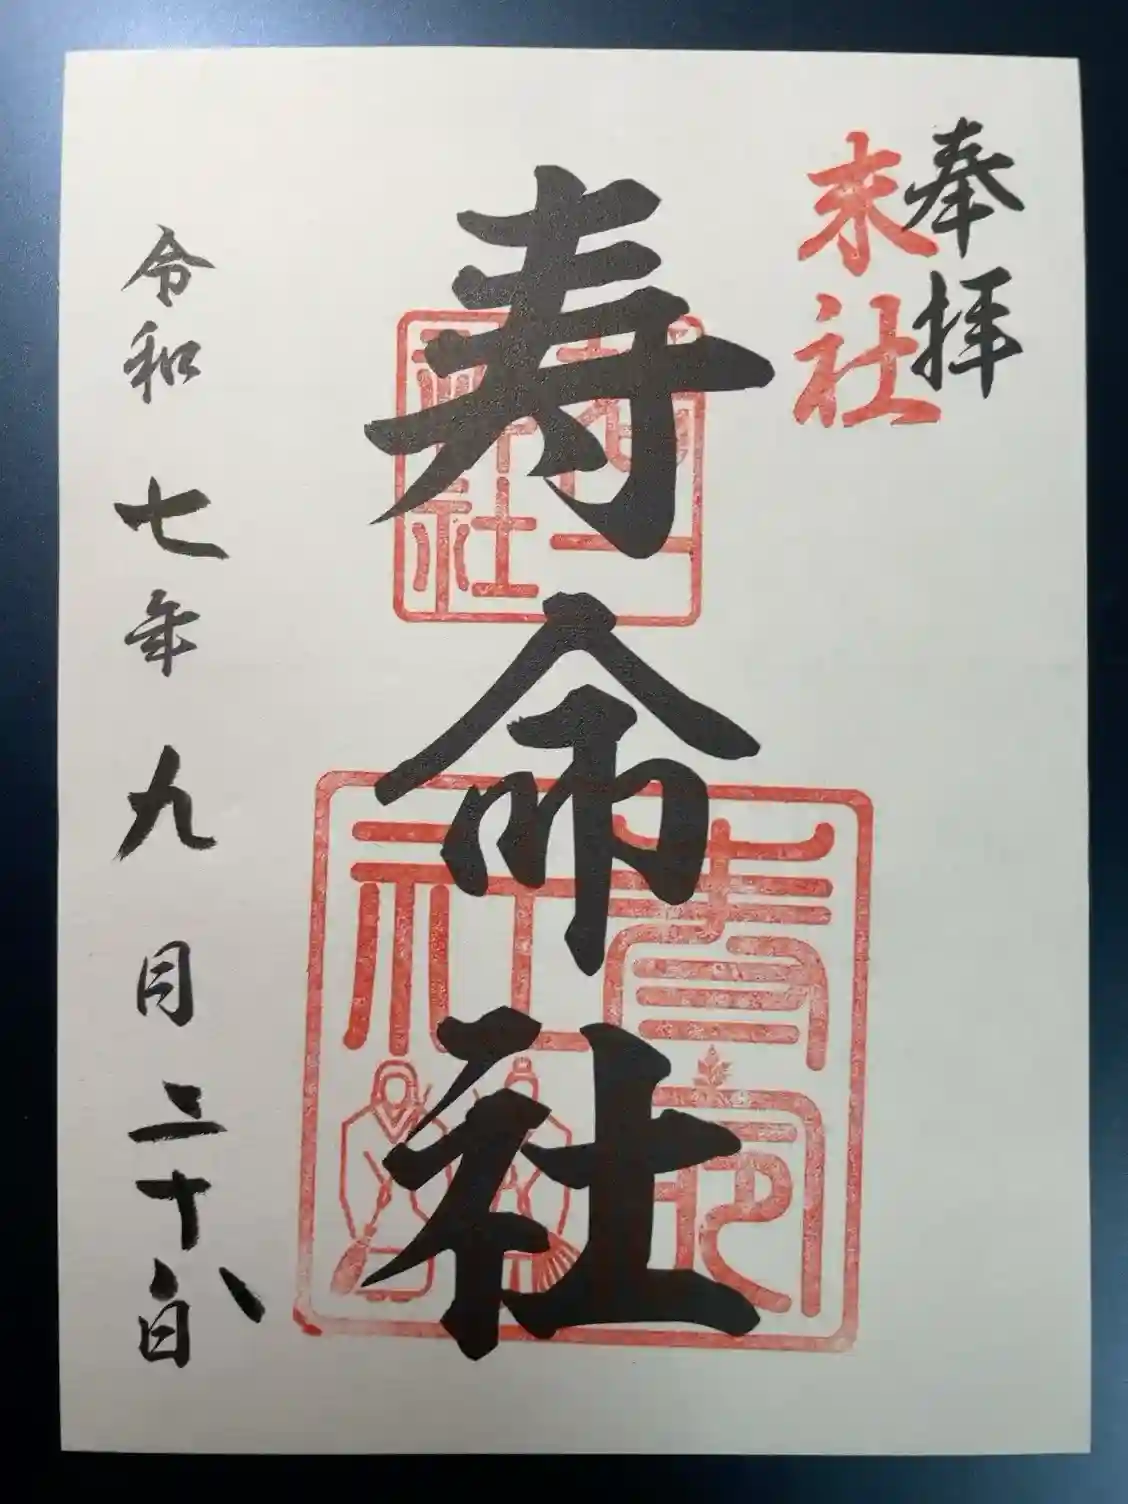 奉拝
末社
寿命社
令和七年九月二十八日